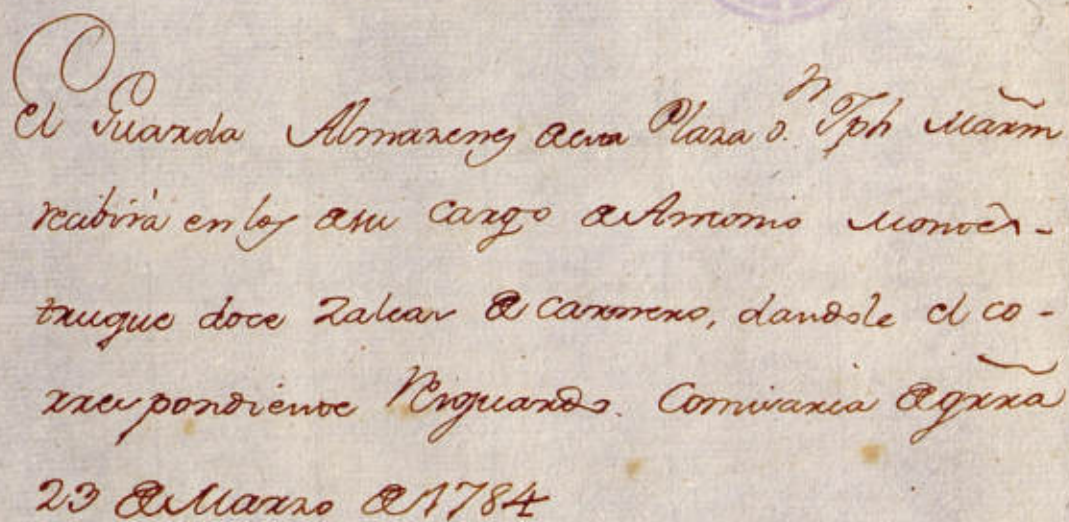 El Guarda Almazenes de esta Plaza Dn. Jph Marñ
recibirá en los de su cargo de Antonio Monves-
truque doce Zaleas de Carnero, dandole el co-
rrespondiente Risguardo. Comisaria de Grra
23 de Marzo de 1784